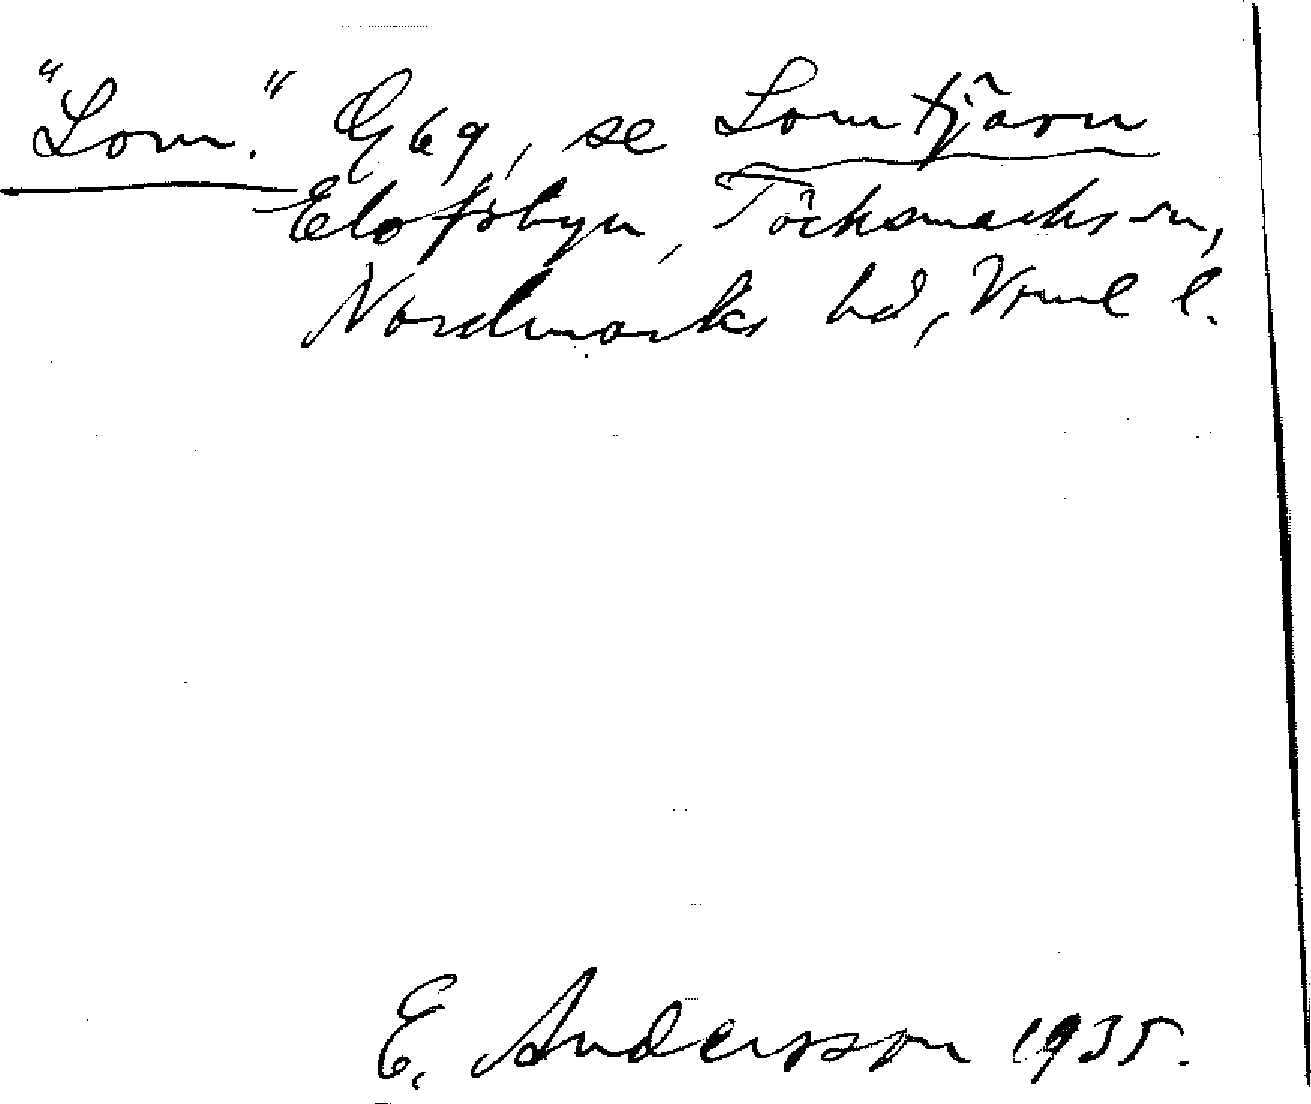 "Lom." G 69, se Lomtjärn
Elofsbyn, Töcksmarks sn,
Nordmarks hd, Vrml l.
E. Andersson 1935.